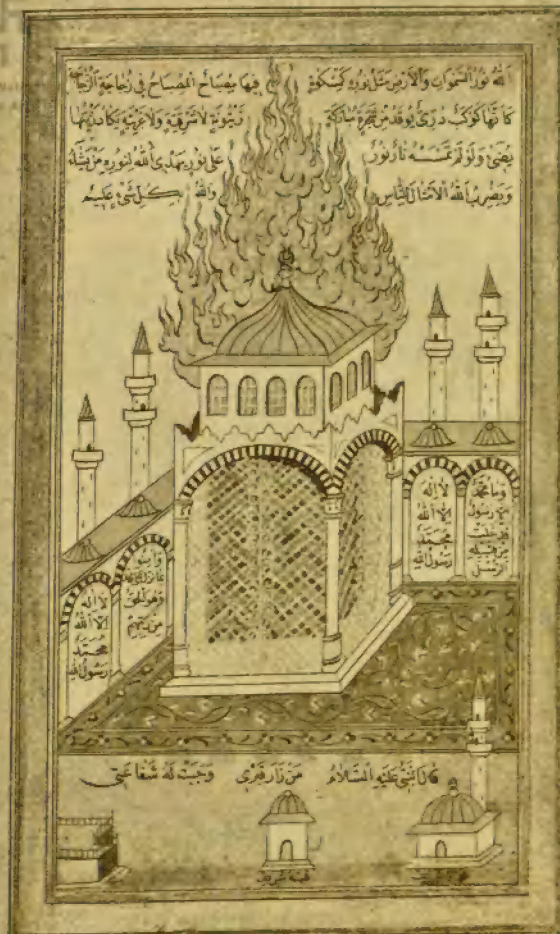 الله نور السموات والارض مثل نوره كمشكوة فيها مصباح المصباح في زجاجة الزجاجة
كانها كوكب درى يوقد من شجرة مباركة زيتونة لا شرقية ولا غربية يكاد زيتها
يضئ ولو لم تمسسه نار نور على نور يهدى الله لنوره من يشاء
ويضرب الله الامثال للناس والله بكل شئ عليم
وما محمد
الا رسول
قد خلت
من قبله
الرسل
لا اله
الا الله
محمد
رسول الله
لا اله
الا الله
محمد
رسول الله
قال النبى عليه السلام من زار قبرى وجبت له شفاعتى
قبة شريف